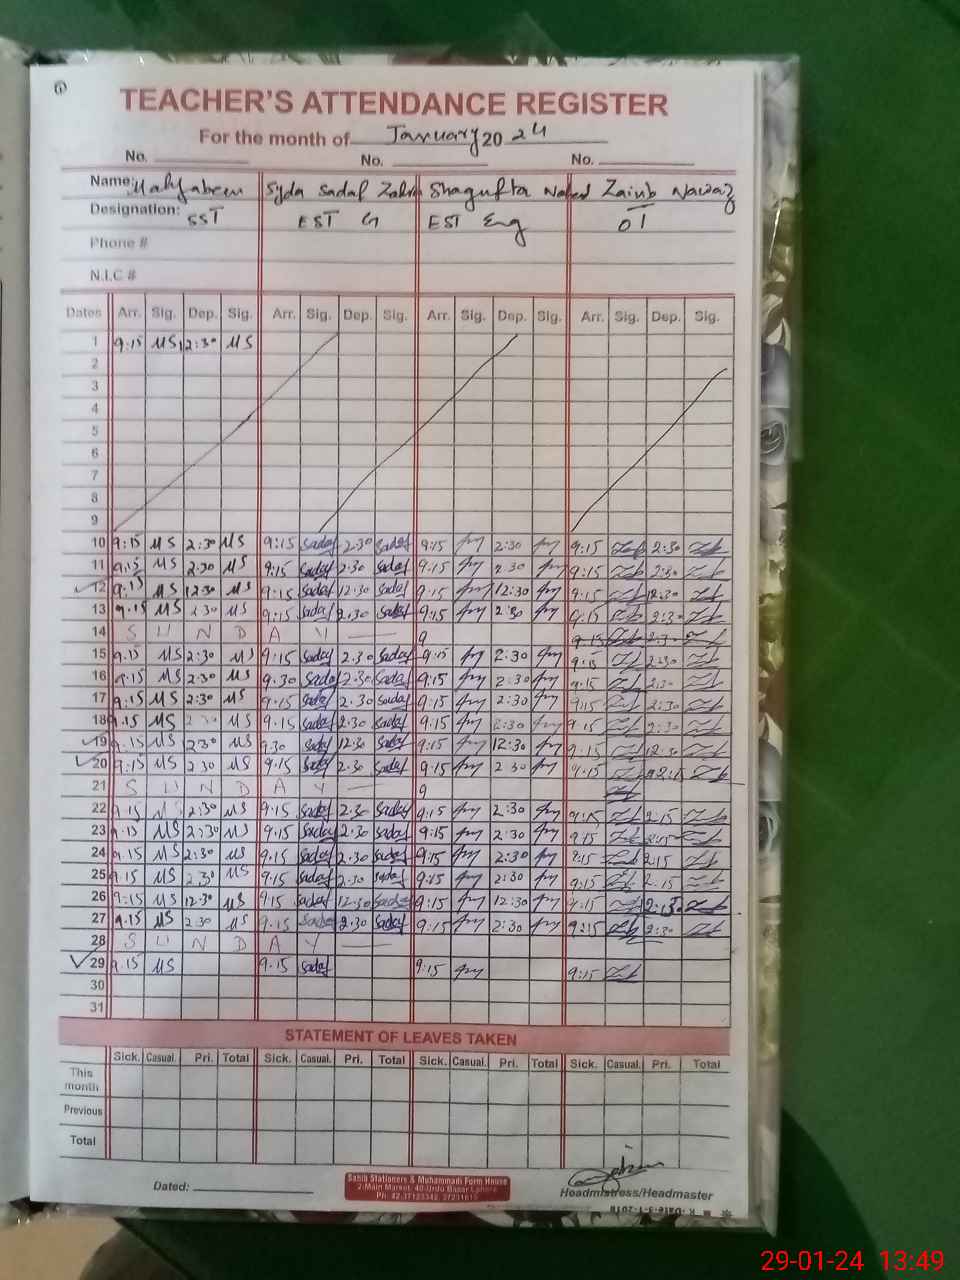 1
TEACHER'S ATTENDANCE REGISTER
For the month of January 20 24
No. No. No.
Name: Mahjabeen Syda Sadaf Zahra Shagufta Zainb Nawaz
Designation: SST EST G EST Eng OT
Phone #
N.I.C #
Dates Arr. Sig. Dep. Sig. Arr. Sig. Dep. Sig. Arr. Sig. Dep. Sig. Arr. Sig. Dep. Sig.
1 9:15 MS 2:30 MS
2
3
4
5
6
7
8
9
10 9:15 MS 2:30 MS 9:15 Sadaf 2:30 Sadaf 9:15 2:30 9:15 2:30
11 9:15 MS 2:30 MS 9:15 Sadaf 2:30 Sadaf 9:15 2:30 9:15 2:30
12 9:15 MS 12:30 MS 9:15 Sadaf 12:30 Sadaf 9:15 12:30 9:15 12:30
13 9:15 MS 2:30 MS 9:15 Sadaf 2:30 Sadaf 9:15 2:30 9:15 2:30
14 S U N D A Y — 9
15 9:15 MS 2:30 MS 9:15 Sadaf 2:30 Sadaf 9:15 2:30 9:15 2:30
16 9:15 MS 2:30 MS 9:30 Sadaf 2:30 Sadaf 9:15 2:30 9:15 2:30
17 9:15 MS 2:30 MS 9:15 Sadaf 2:30 Sadaf 9:15 2:30 9:15 2:30
18 9:15 MS 2:30 MS 9:15 Sadaf 2:30 Sadaf 9:15 2:30 9:15 2:30
19 9:15 MS 230 MS 9:30 Sadaf 12:30 Sadaf 9:15 12:30 9:15 12:30
20 9:15 MS 2:30 MS 9:15 Sadaf 2:30 Sadaf 9:15 2:30 9:15
21 S U N D A Y — 9
22 9:15 MS 2:30 MS 9:15 Sadaf 2:30 Sadaf 9:15 2:30 9:15 2:15
23 9:15 MS 2:30 MS 9:15 Sadaf 2:30 Sadaf 9:15 2:30 9:15 2:15
24 9:15 MS 2:30 MS 9:15 Sadaf 2:30 Sadaf 9:15 2:30 9:15 2:15
25 9:15 MS 2:30 MS 9:15 Sadaf 2:30 Sadaf 9:15 2:30 9:15 2:15
26 9:15 MS 12:30 MS 9:15 Sadaf 12:30 Sadaf 9:15 12:30 9:15 2:15
27 9:15 MS 2:30 MS 9:15 Sadaf 2:30 Sadaf 9:15 2:30 9:15 2:30
28 S U N D A Y —
29 9:15 MS 9:15 Sadaf 9:15 9:15
30
31
STATEMENT OF LEAVES TAKEN
Sick. Casual. Pri. Total Sick. Casual. Pri. Total Sick. Casual. Pri. Total Sick. Casual. Pri. Total
This
month
Previous
Total
Dated:
Sahib Stationers & Muhammadi Form House
2-Main Market, 40-Urdu Bazar Lahore
Ph: 42-37123342, 37231615
Headmistress/Headmaster
29-01-24 13:49